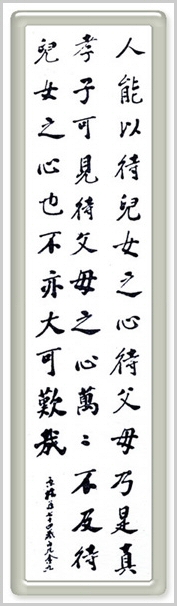 人能以待兒女之心待父母乃是真
孝子可見待父母之心萬〻不及待
兒女之心也不亦大可歎哉